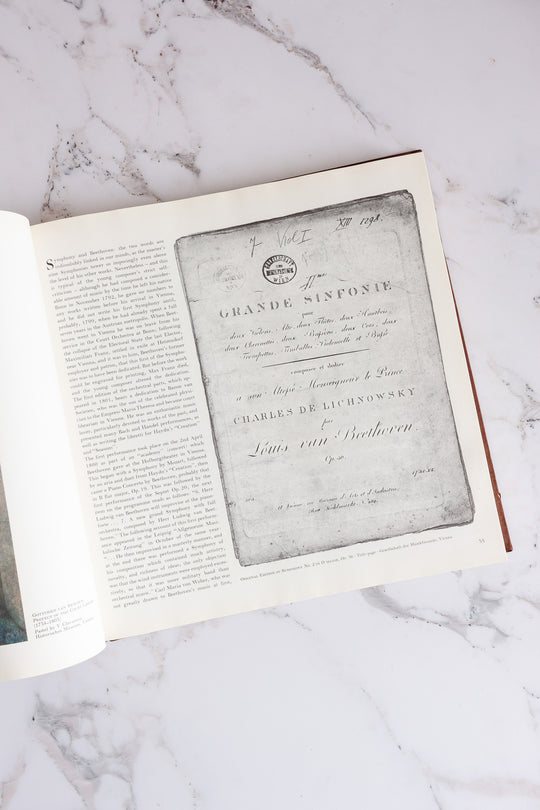 Symphony and Beethoven: the two words are
indissolubly linked in our minds, as the master's
nine Symphonies tower so imposingly even above
the level of his other works. Nevertheless – and this
is typical of the young composer's strict self-
criticism – although he had composed a consider-
able amount of music by the time he left his native
Bonn in November 1792, he gave no numbers to
any works written before his arrival in Vienna,
and he did not write his first Symphony until,
probably, 1799, when he had already spent a full
seven years in the Austrian metropolis. When Beet-
hoven went to Vienna he was on leave from his
service in the Court Orchestra at Bonn; following
the collapse of the Electoral State the last Elector,
Maximilian Franz, settled in exile at Hetzendorf
near Vienna, and it was to him, Beethoven's former
employer and patron, that the first of the Sympho-
nies was to have been dedicated. But before the work
could be engraved for printing, Max Franz died,
and the young composer altered the dedication.
The first edition of the orchestral parts, which ap-
peared in 1801, bears a dedication to Baron van
Swieten, who was the son of the celebrated physi-
cian to the Empress Maria Theresa and became court
librarian in Vienna. He was an enthusiastic music
lover, particularly devoted to works of the past, and
presented many Bach and Handel performances, as
well as writing the libretti for Haydn's "Creation"
and "Seasons".
The first performance took place on the 2nd April
1800 as part of an "academy" (concert) which
Beethoven gave at the Hofburgtheater in Vienna.
This began with a Symphony by Mozart, followed
by an aria and duet from Haydn's "Creation", then
came a Piano Concerto by Beethoven, probably that
in B flat major, Op. 19. This was followed by the
first performance of the Septet Op. 20; the next
item on the programme reads as follows: "6. Herr
Ludwig van Beethoven will improvise on the piano-
forte . 7. A new grand Symphony with full
orchestra, composed by Herr Ludwig van Beet-
hoven." The following account of this first perform-
ance appeared in the Leipzig "Allgemeine Musi-
kalische Zeitung" in October of the same year:
". . . He then improvised in a masterly manner, and
at the end there was performed a Symphony of
his composition which contained much artistry,
novelty, and richness of ideas; the only objection
was that the wind instruments were employed exces-
sively, so that it was more military band than
orchestral music." Carl Maria von Weber, who was
not greatly drawn to Beethoven's music at first,
7 Vol I
XIII 1294.
GESELLSCHAFT
DER
MUSIKFREUNDE
WIEN
IIme
GRANDE SINFONIE
pour
deux Violons, Alto, deux Flûtes, deux Hautbois,
deux Clarinettes, deux Bassons, deux Cors, deux
Trompettes, Timballes, Violoncelle et Basse
composée et dediée
à son Altesse Monseigneur le Prince
CHARLES DE LICHNOWSKY
par
Louis van Beethoven.
Op. 36.
à Vienne au Bureau d'Arts et d'Industrie,
ORIGINAL EDITION OF SYMPHONY NO. 2 IN D MAJOR, OP. 36. Title-page. Gesellschaft der Musikfreunde, Vienna
51
GOTTFRIED VAN SWIETEN,
PREFECT OF THE COURT LIBRARY
(1733–1803)
Pastel by
Historisches Museum, Vienna